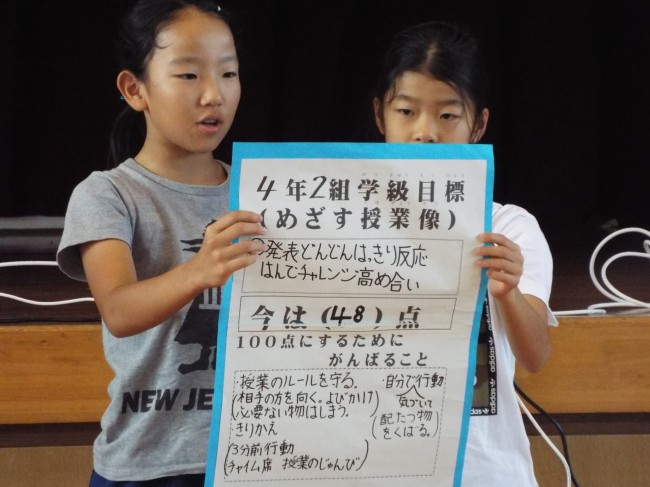 4年2組学級目標
(めざす授業像)
発表どんどんはっきり反応
はんでチャレンジ高め合い
今は(48)点
100点にするために
がんばること
・授業のルールを守る。
(相手の方を向く。よびかけ
必要ない物はしまう。)
・きりかえ
3分前行動
(チャイム席 授業のじゅんび)
・自分で行動
(気づいて
配たつ物
をくばる。)
NEW JER
adidas
adidas